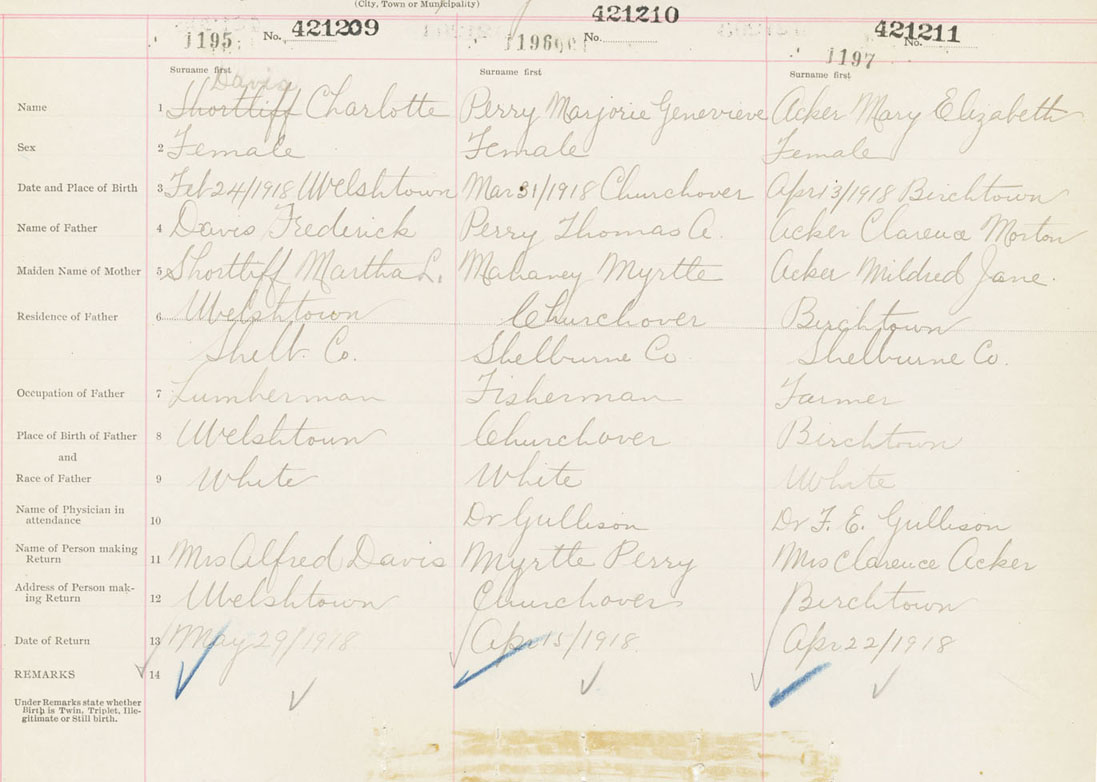 (City, Town or Municipality)
1195 No. 421209 1196 No. 421210 1197 No. 421211
Surname first Surname first Surname first
Davis
Name 1 Shortliff Charlotte Perry Marjorie Genevieve Acker Mary Elizabeth
Sex 2 Female Female Female
Date and Place of Birth 3 Feb 24/1918 Welshtown Mar 31/1918 Churchover Apr 13/1918 Birchtown
Name of Father 4 Davis Frederick Perry Thomas A. Acker Clarence Morton
Maiden Name of Mother 5 Shortliff Martha L. Mahaney Myrtle Acker Mildred Jane.
Residence of Father 6 Welshtown Churchover Birchtown
Shelb. Co. Shelburne Co. Shelburne Co.
Occupation of Father 7 Lumberman Fisherman Farmer
Place of Birth of Father 8 Welshtown Churchover Birchtown
and
Race of Father 9 White White White
Name of Physician in
attendance 10 Dr Gullison Dr F. E. Gullison
Name of Person making
Return 11 Mrs Alfred Davis Myrtle Perry Mrs Clarence Acker
Address of Person mak-
ing Return 12 Welshtown Churchover Birchtown
Date of Return 13 May 29/1918. Apr 15/1918. Apr 22/1918
REMARKS 14
Under Remarks state whether
Birth is Twin, Triplet, Ille-
gitimate or Still birth.